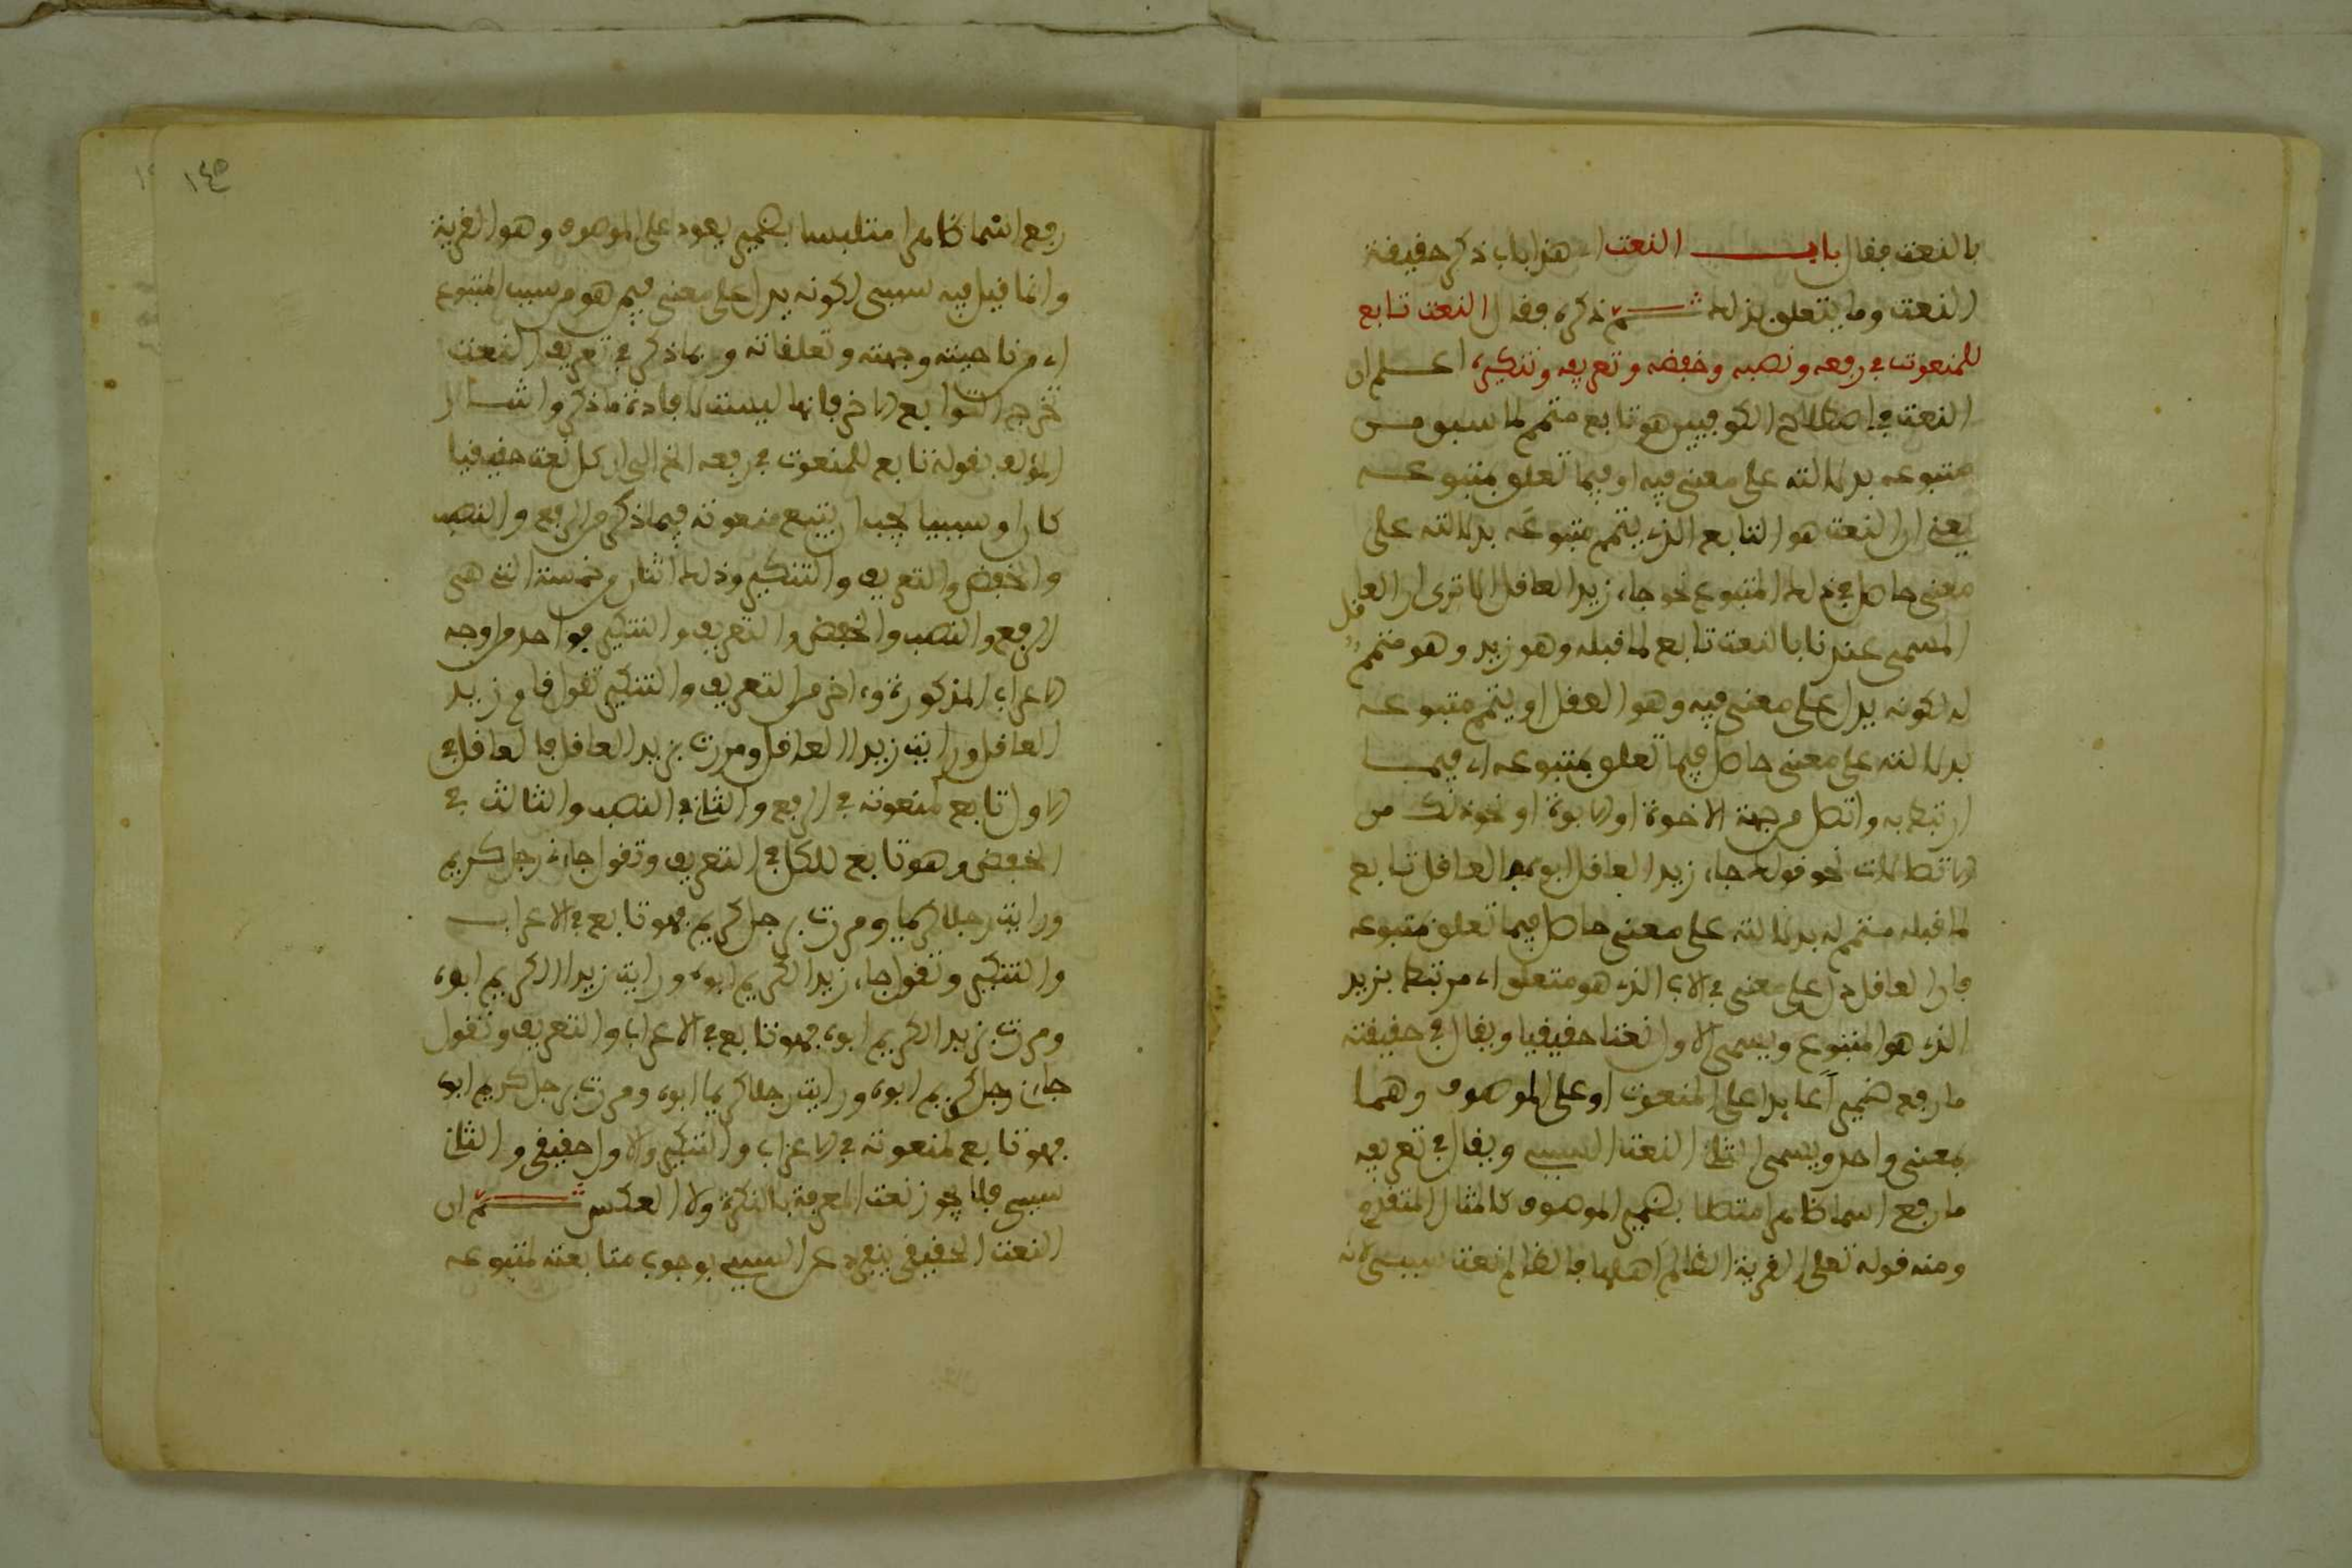 بالنعت فقال باب النعت اي هذا باب ذكر حقيقة
النعت وما يتعلق بذلك ثم ذكره فقال النعت تابع
للمنعوت في رفعه ونصبه وخفضه وتعريفه وتنكيره اعلم ان
النعت في اصطلاح الكوفيين هو تابع متمم لما سبق من
متبوعه بدلالته على معنى فيه او فيما تعلق بمتبوعه
يعني ان النعت هو التابع الذي يتمم متبوعه بدلالته على
معنى حاصل في ذلك المتبوع نحو جاء زيد العاقل الا ترى ان العاقل
المسمى عندنا بالنعت تابع لما قبله وهو زيد وهو متمم
له لكونه يدل على معنى فيه وهو العقل او يتمم متبوعه
بدلالته على معنى حاصل فيما تعلق بمتبوعه اي فيما
ارتبط به واتصل من جهة الاخوة او الابوة او نحو ذلك من
الاتصالات نحو قولك جاء زيد العاقل ابوه فالعاقل تابع
لما قبله متمم له بدلالته على معنى حاصل فيما تعلق بمتبوعه
فان العاقل دل على معنى في الاب الذي هو متعلق اي مرتبط بزيد
الذي هو المتبوع ويسمى الاول نعتا حقيقيا ويقال في حقيقته
ما رفع ضميرا عايدا على المنعوت او على الموصوف وهما
بمعنى واحد ويسمى الثاني النعت السببي ويقال في تعريفه
ما رفع اسما ظاهرا متصلا بضمير الموصوف كالمثال المتقدم
ومنه قوله تعلى القرية الظالم اهلها فالظالم نعت سببي لانه
١٤٥
رفع اسما ظاهرا متلبسا بضمير يعود على الموصوف وهو القرية
وانما قيل فيه سببي لكونه يدل على معنى فيمن هو من سبب المتبوع
اي من ناحيته وجهته وتعلقاته وبما ذكر في تعريف النعت
تخرج التوابع الاخر فانها ليست لافادة ما ذكر واشار
المؤلف بقوله تابع للمنعوت في رفعه الخ الى ان كل نعت حقيقيا
كان او سببيا يجب ان يتبع منعوته فيما ذكر من الرفع والنصب
والخفض والتعريف والتنكير وذلك اثنان من خمسة التي هي
الرفع والنصب والخفض والتعريف والتنكير فواحد من اوجه
الاعراب المذكورة واخر من التعريف والتنكير تقول قام زيد
العاقل ورايت زيدا العاقل ومررت بزيد العاقل فالعاقل في
الاول تابع لمنعوته في الرفع والثاني في النصب والثالث في
الخفض وهو تابع للكل في التعريف وتقول جاءني رجل كريم
ورايت رجلا كريما ومررت برجل كريم فهو تابع في الاعراب
والتنكير وتقول جاء زيد الكريم ابوه ورايت زيدا الكريم ابوه
ومررت بزيد الكريم ابوه فهو تابع في الاعراب والتعريف وتقول
جاءني رجل كريم ابوه ورايت رجلا كريما ابوه ومررت برجل كريم ابوه
فهو تابع لمنعوته في الاعراب والتنكير والاول حقيقي والثاني
سببي فلا يجوز نعت المعرفة بالنكرة ولا العكس ثم ان
النعت الحقيقي ينفرد عن السببي بوجوب متابعته لمتبوعه